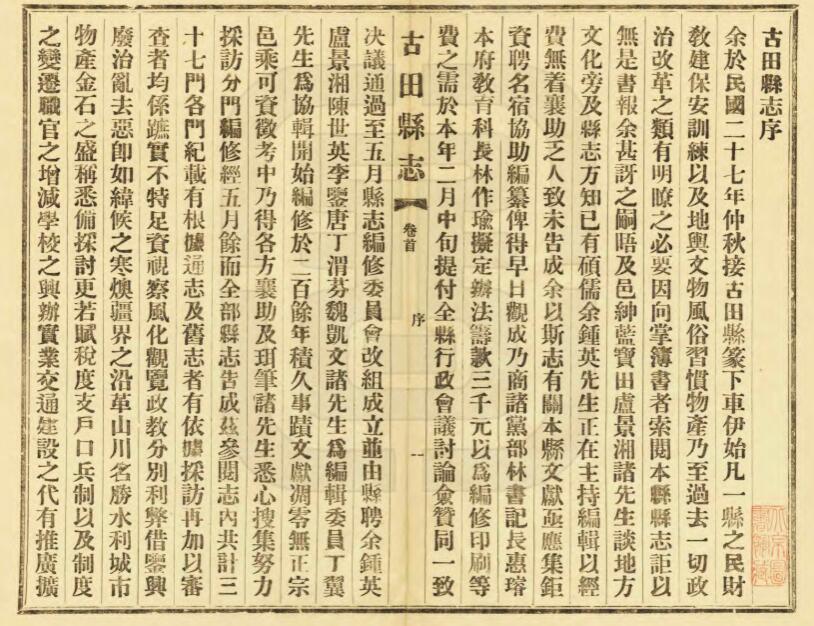 古田縣志序
余於民國二十七年仲秋接古田縣篆下車伊始凡一縣之民財
敎建保安訓練以及地輿文物風俗習慣物產乃至過去一切政
治改革之類有明瞭之必要因向掌簿書者索閱本縣縣志詎以
無是書報余甚訝之嗣晤及邑紳藍寶田盧景湘諸先生談地方
文化旁及縣志方知已有碩儒余鍾英先生正在主持編輯以經
費無着襄助乏人致未告成余以斯志有關本縣文獻亟應集鉅
資聘名宿協助編纂俾得早日觀成乃商諸黨部林書記長惠瑢
本府敎育科長林作瑜擬定辦法籌款三千元以爲編修印刷等
費之需於本年二月中旬提付全縣行政會議討論僉贊同一致
古田縣志
卷首
序
一
决議通過至五月縣志編修委員會改組成立並由縣聘余鍾英
盧景湘陳世英李鑒唐丁渭芬魏凱文諸先生爲編輯委員丁翼
先生爲協輯開始編修於二百餘年積久事蹟文獻凋零無正宗
邑乘可資徵考中乃得各方襄助及珥筆諸先生悉心搜集努力
採訪分門編修經五月餘而全部縣志告成茲參閱志內共計三
十七門各門紀載有根據通志及舊志者有依據採訪再加以審
查者均係蹠實不特足資視察風化觀覽政敎分別利弊借鑒興
廢治亂去惡卽如緯候之寒燠疆界之沿革山川名勝水利城市
物產金石之盛稱悉備採討更若賦稅度支戶口兵制以及制度
之變遷職官之增減學校之興辦實業交通建設之代有推廣擴